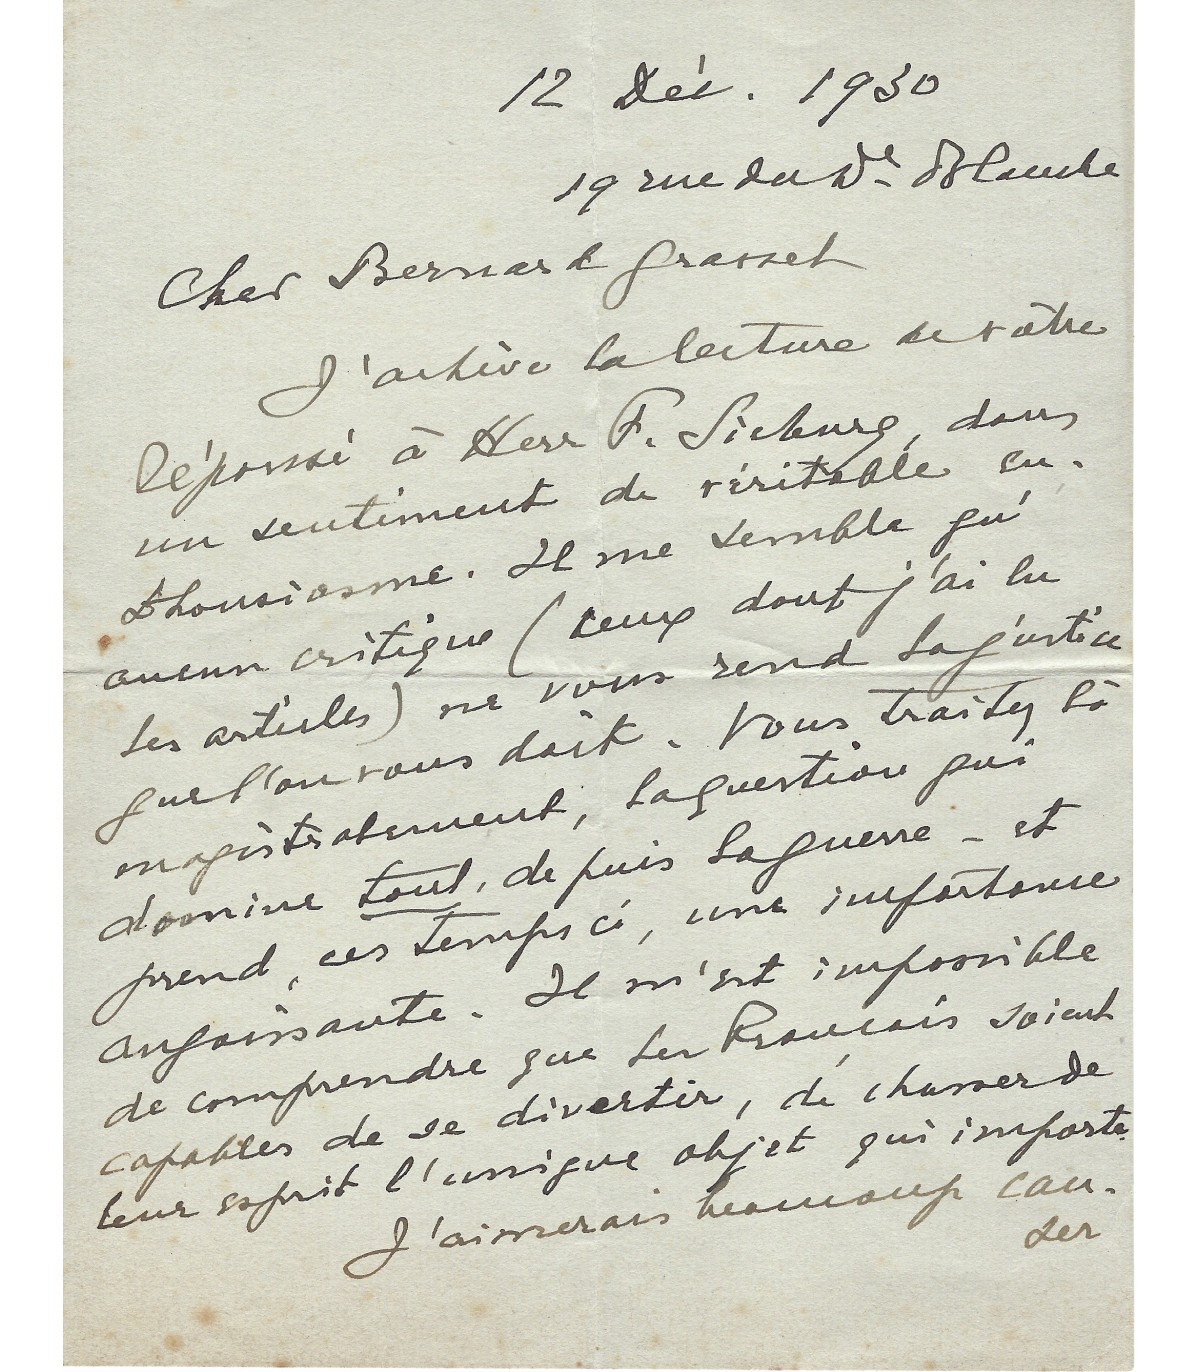 12 Déc. 1930
19 rue du Dr Blanche
Cher Bernard Grasset
J'achève la lecture de votre
Réponse à Herr F. Sieburg, dans
un sentiment de véritable en-
thousiasme. Il me semble qu'
aucun critique (ceux dont j'ai lu
les articles) ne vous rend la justice
que l'on vous doit. Vous traitez là
magistralement, la question qui
domine tout, depuis la guerre - et
prend, ces temps ci, une importance
angoissante. Il m'est impossible
de comprendre que les Français soient
capables de se divertir, de chasser de
leur esprit l'unique objet qui importe.
J'aimerais beaucoup cau-
ser